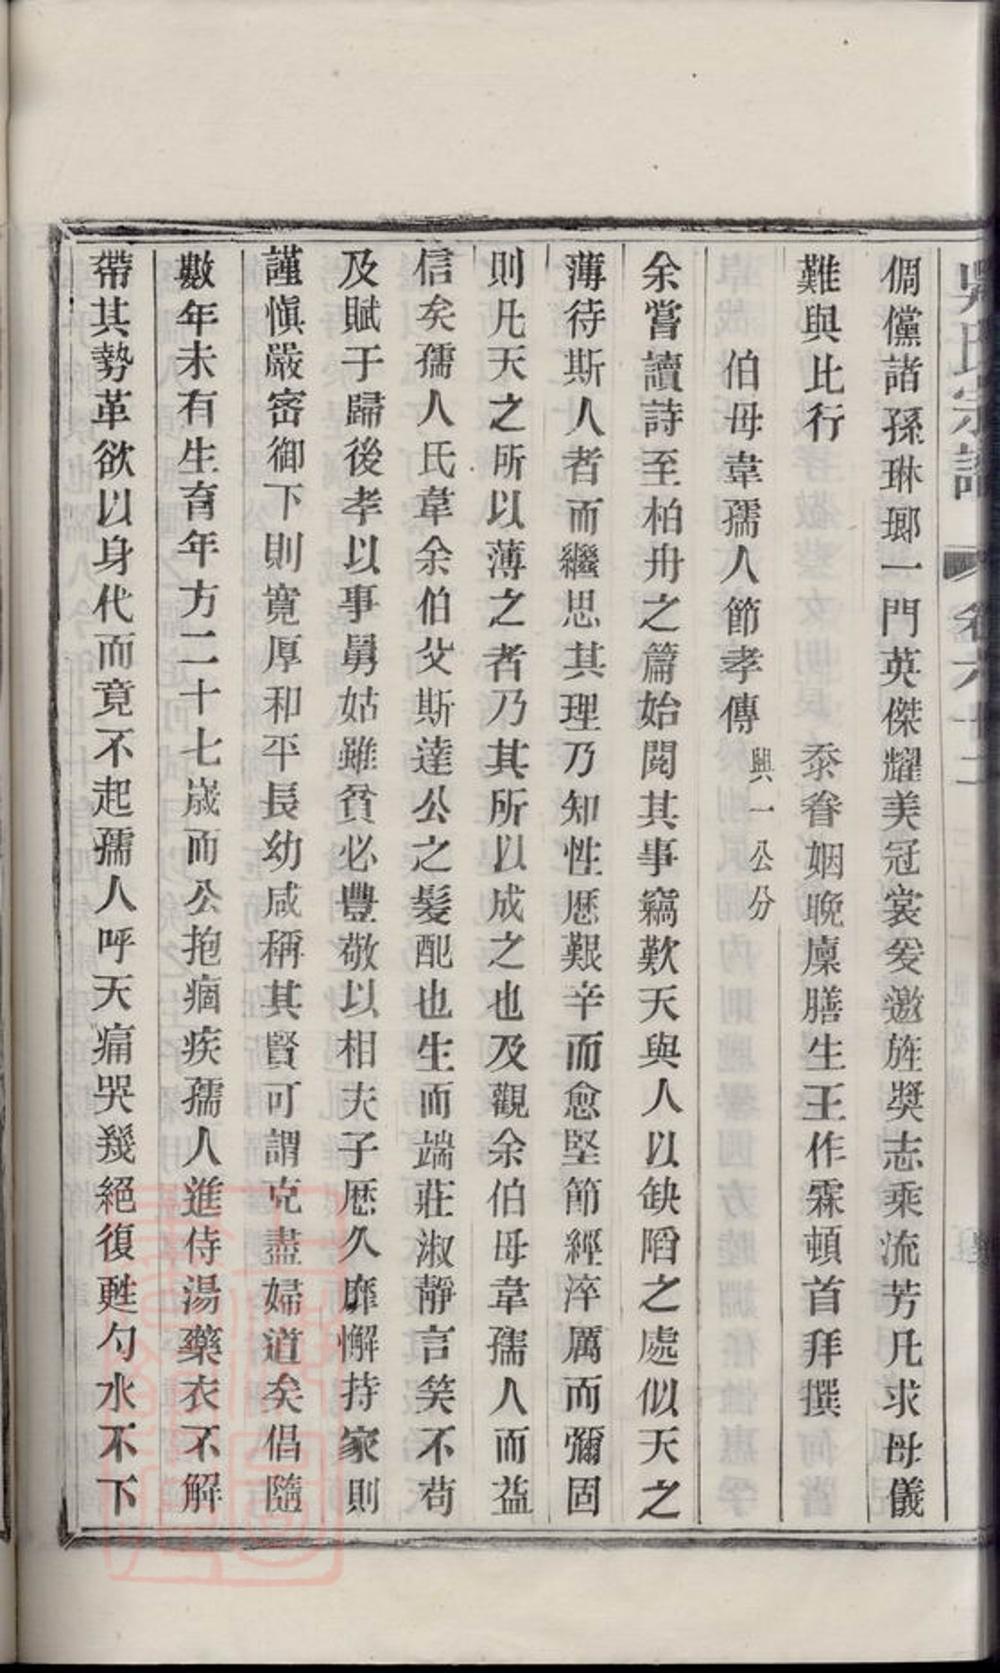 吳氏宗譜 卷六十二
倜儻諸孫琳瑯一門英傑耀美冠裳爰邀旌奬志乘流芳凡求母儀
難與比行 忝眷姻晚廩膳生王作霖頓首拜撰
伯母韋孺人節孝傳 興一公分
余嘗讀詩至柏舟之篇始閱其事竊歎天與人以缺陷之處似天之
薄待斯人者而繼思其理乃知性歷艱辛而愈堅節經淬厲而彌固
則凡天之所以薄之者乃其所以成之也及觀余伯母韋孺人而益
信矣孺人氏韋余伯父斯達公之髮配也生而端莊淑靜言笑不苟
及賦于歸後孝以事舅姑雖貧必豐敬以相夫子歷久靡懈持家則
謹愼嚴密御下則寬厚和平長幼咸稱其賢可謂克盡婦道矣倡隨
數年未有生育年方二十七歲而公抱痼疾孺人進侍湯藥衣不解
帶其勢革欲以身代而竟不起孺人呼天痛哭幾絕復甦勺水不下